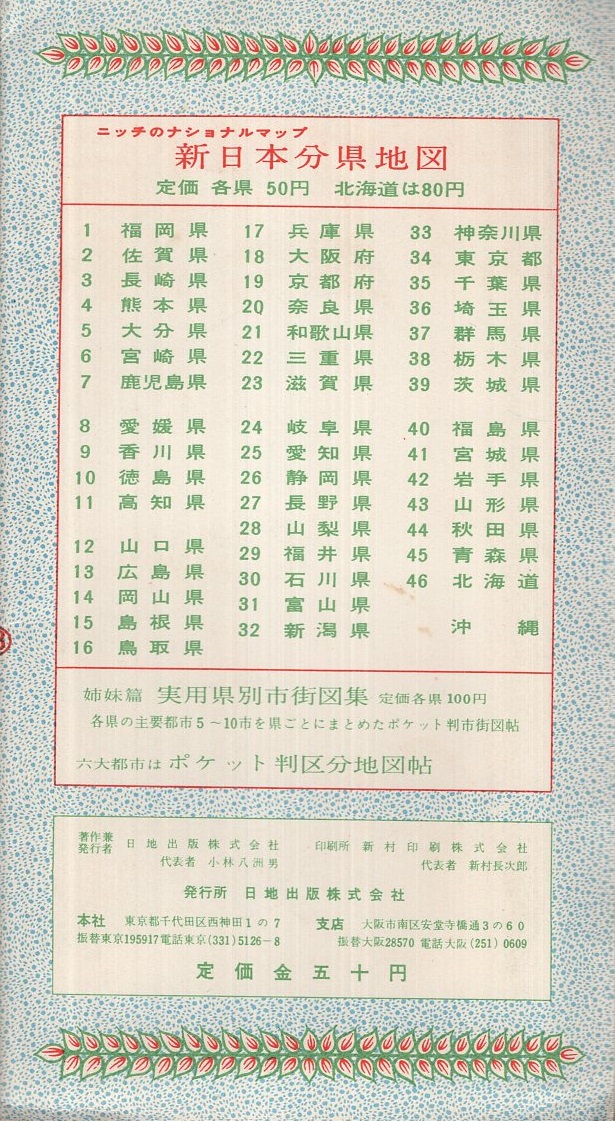 ニッチのナショナルマップ
新日本分県地図
定価 各県 50円 北海道は80円
1 福岡県
2 佐賀県
3 長崎県
4 熊本県
5 大分県
6 宮崎県
7 鹿児島県
8 愛媛県
9 香川県
10 徳島県
11 高知県
12 山口県
13 広島県
14 岡山県
15 島根県
16 鳥取県
17 兵庫県
18 大阪府
19 京都府
20 奈良県
21 和歌山県
22 三重県
23 滋賀県
24 岐阜県
25 愛知県
26 静岡県
27 長野県
28 山梨県
29 福井県
30 石川県
31 富山県
32 新潟県
33 神奈川県
34 東京都
35 千葉県
36 埼玉県
37 群馬県
38 栃木県
39 茨城県
40 福島県
41 宮城県
42 岩手県
43 山形県
44 秋田県
45 青森県
46 北海道
沖縄
姉妹篇 実用県別市街図集 定価各県100円
各県の主要都市5~10市を県ごとにまとめたポケット判市街図帖
六大都市は ポケット判区分地図帖
著作兼発行者 日地出版株式会社
代表者 小林八洲男
印刷所 新村印刷株式会社
代表者 新村長次郎
発行所 日地出版株式会社
本社 東京都千代田区西神田1の7
振替東京195917電話東京(331)5126-8
支店 大阪市南区安堂寺橋通3の60
振替大阪28570 電話大阪(251)0609
定価金五十円